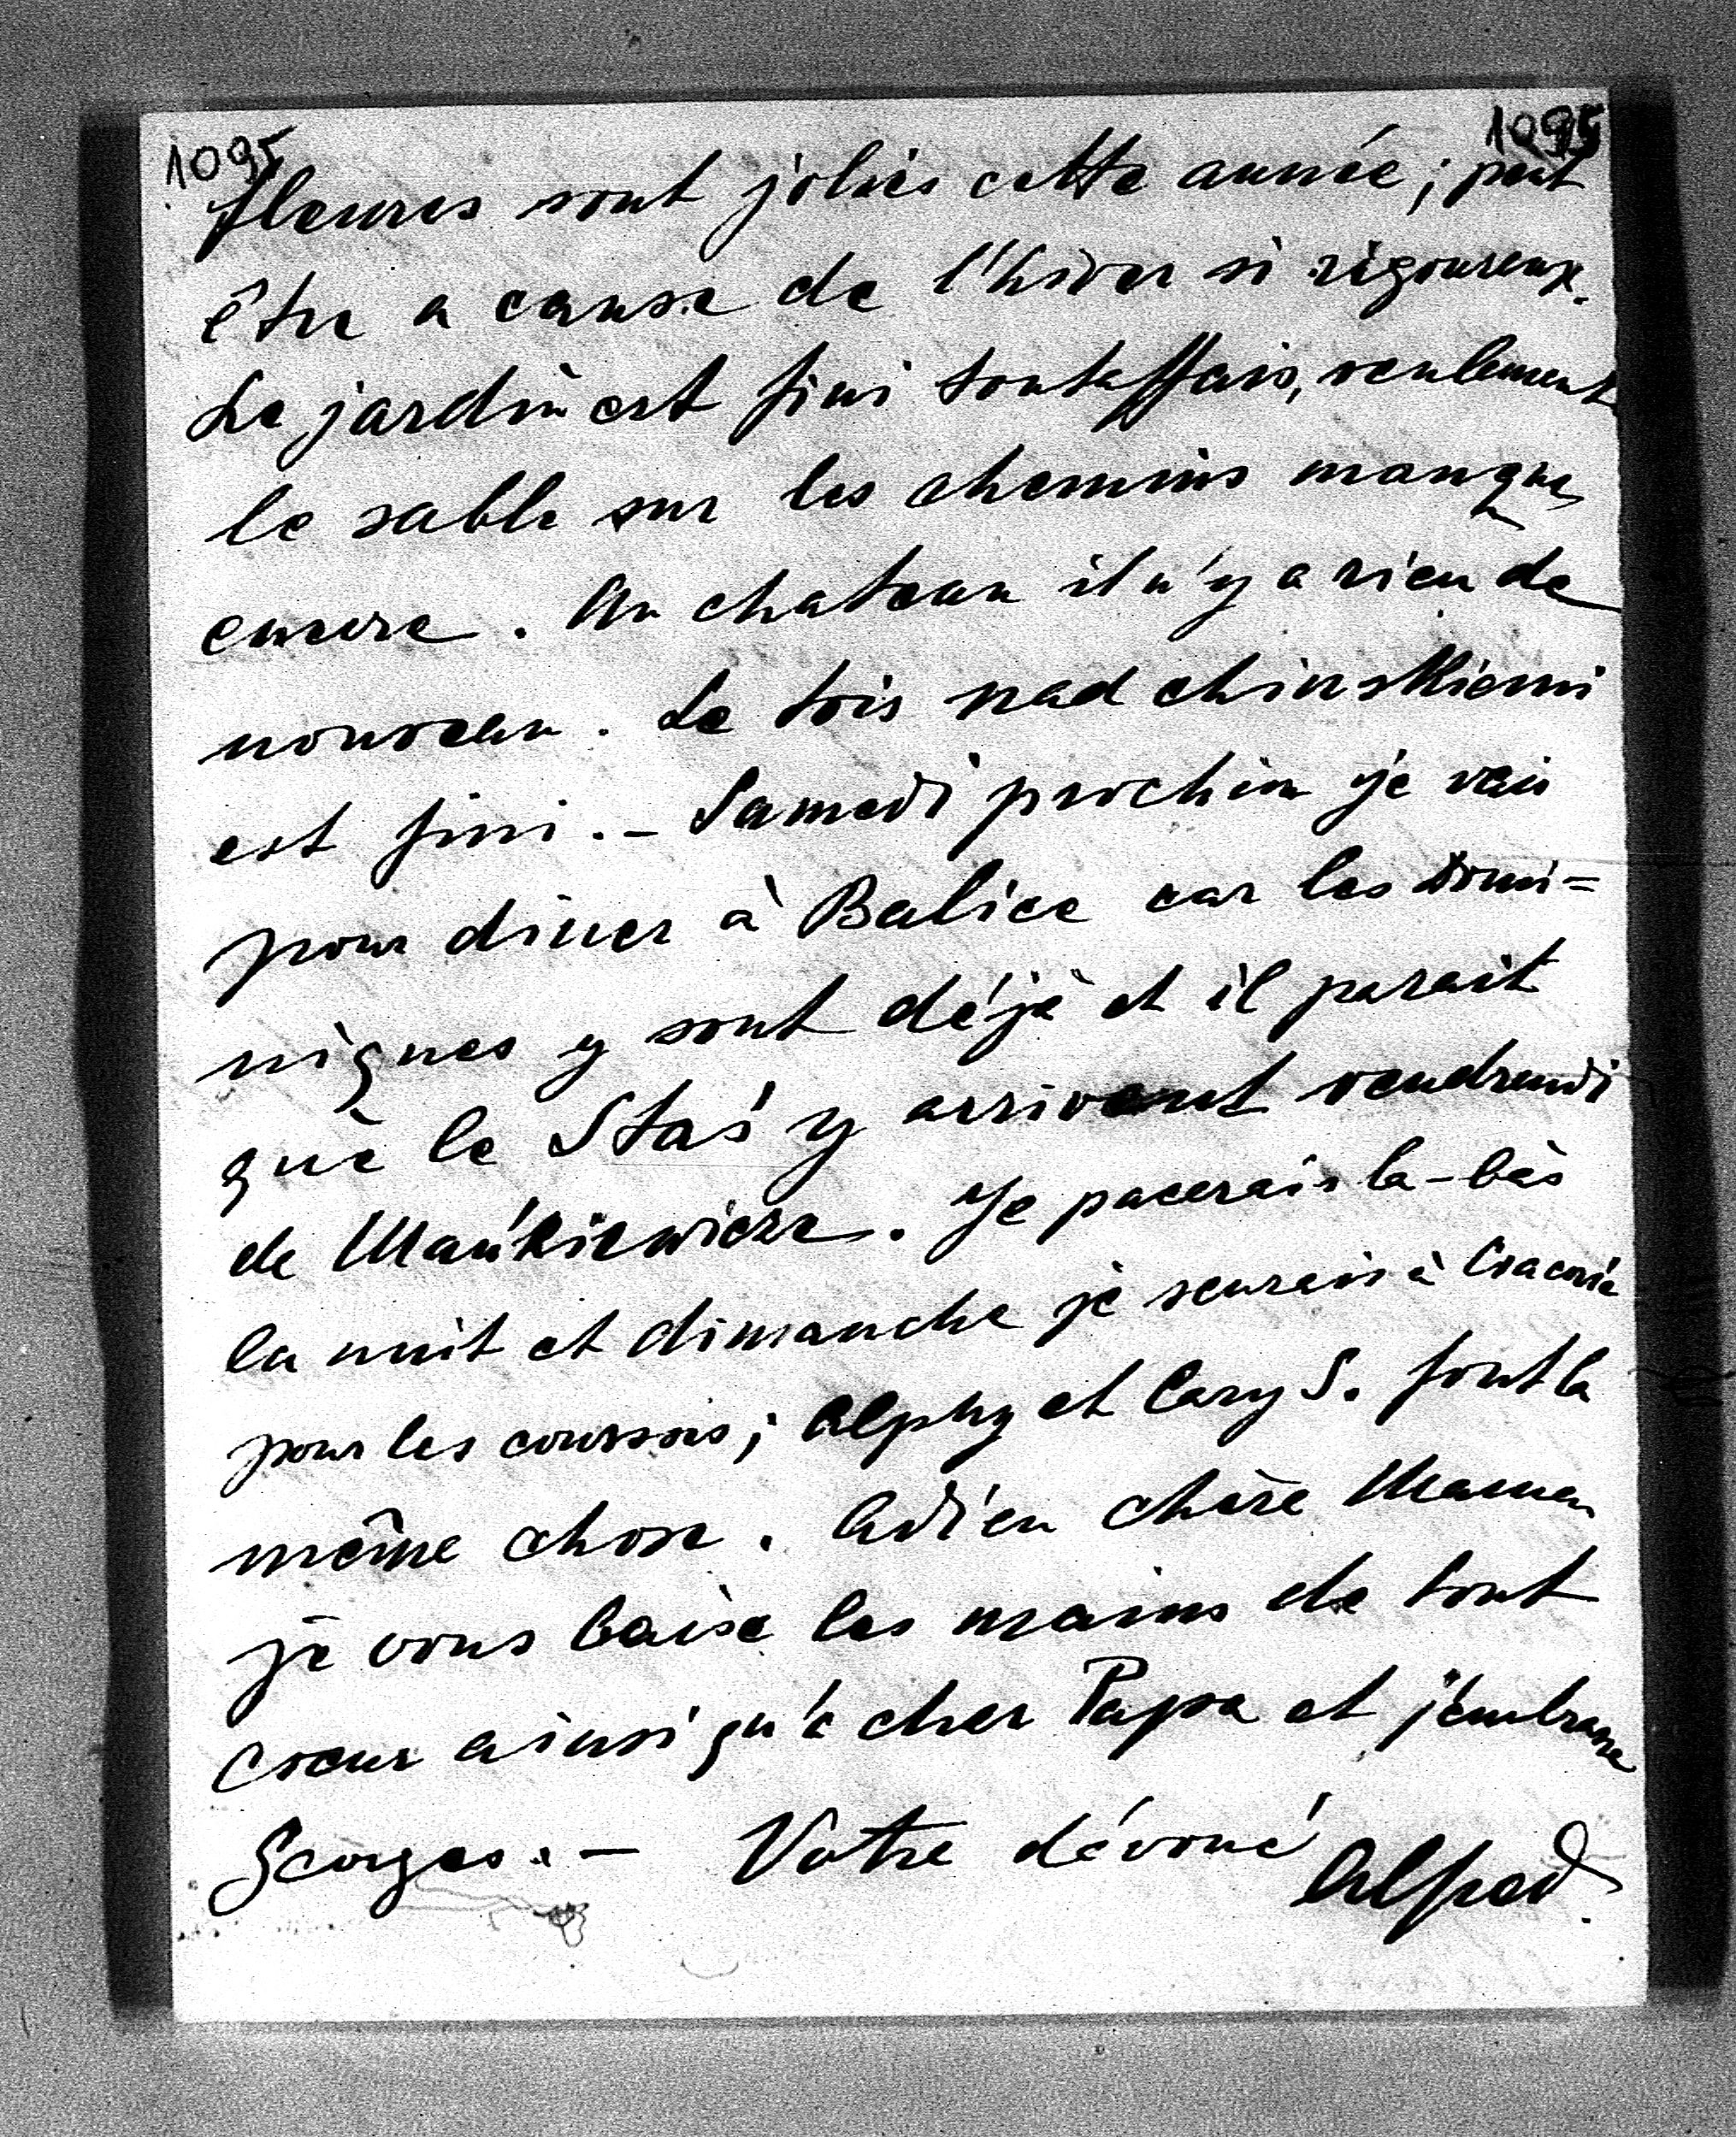 1095 1095
fleures sont jolies cette année; peut
être a cause de l'hiver si rigoureux.
Le jardin est fini toutaffais, seulement
le sable sur les chemins manque
encore. Au chateau il n'y a rien de
nouveau. Le tois nad chinskiemi
est fini. – Samedi prochin je vais
pour diner à Balice car les Domi=
niques y sont déjà et il parait
que le Staś y arrivent vendrendi
de Mańkiewicze. Je pacerais la-bàs
la nuit et dimanche je seurais à Cracovie
pour les coursois; Alphy et Cary S. font la
même chose. Adieu chère Maman
je vous baise les mains de tout
coeur ainsi qu'à cher Papa et j'embrasse
Georges. – Votre dévoué Alfred.